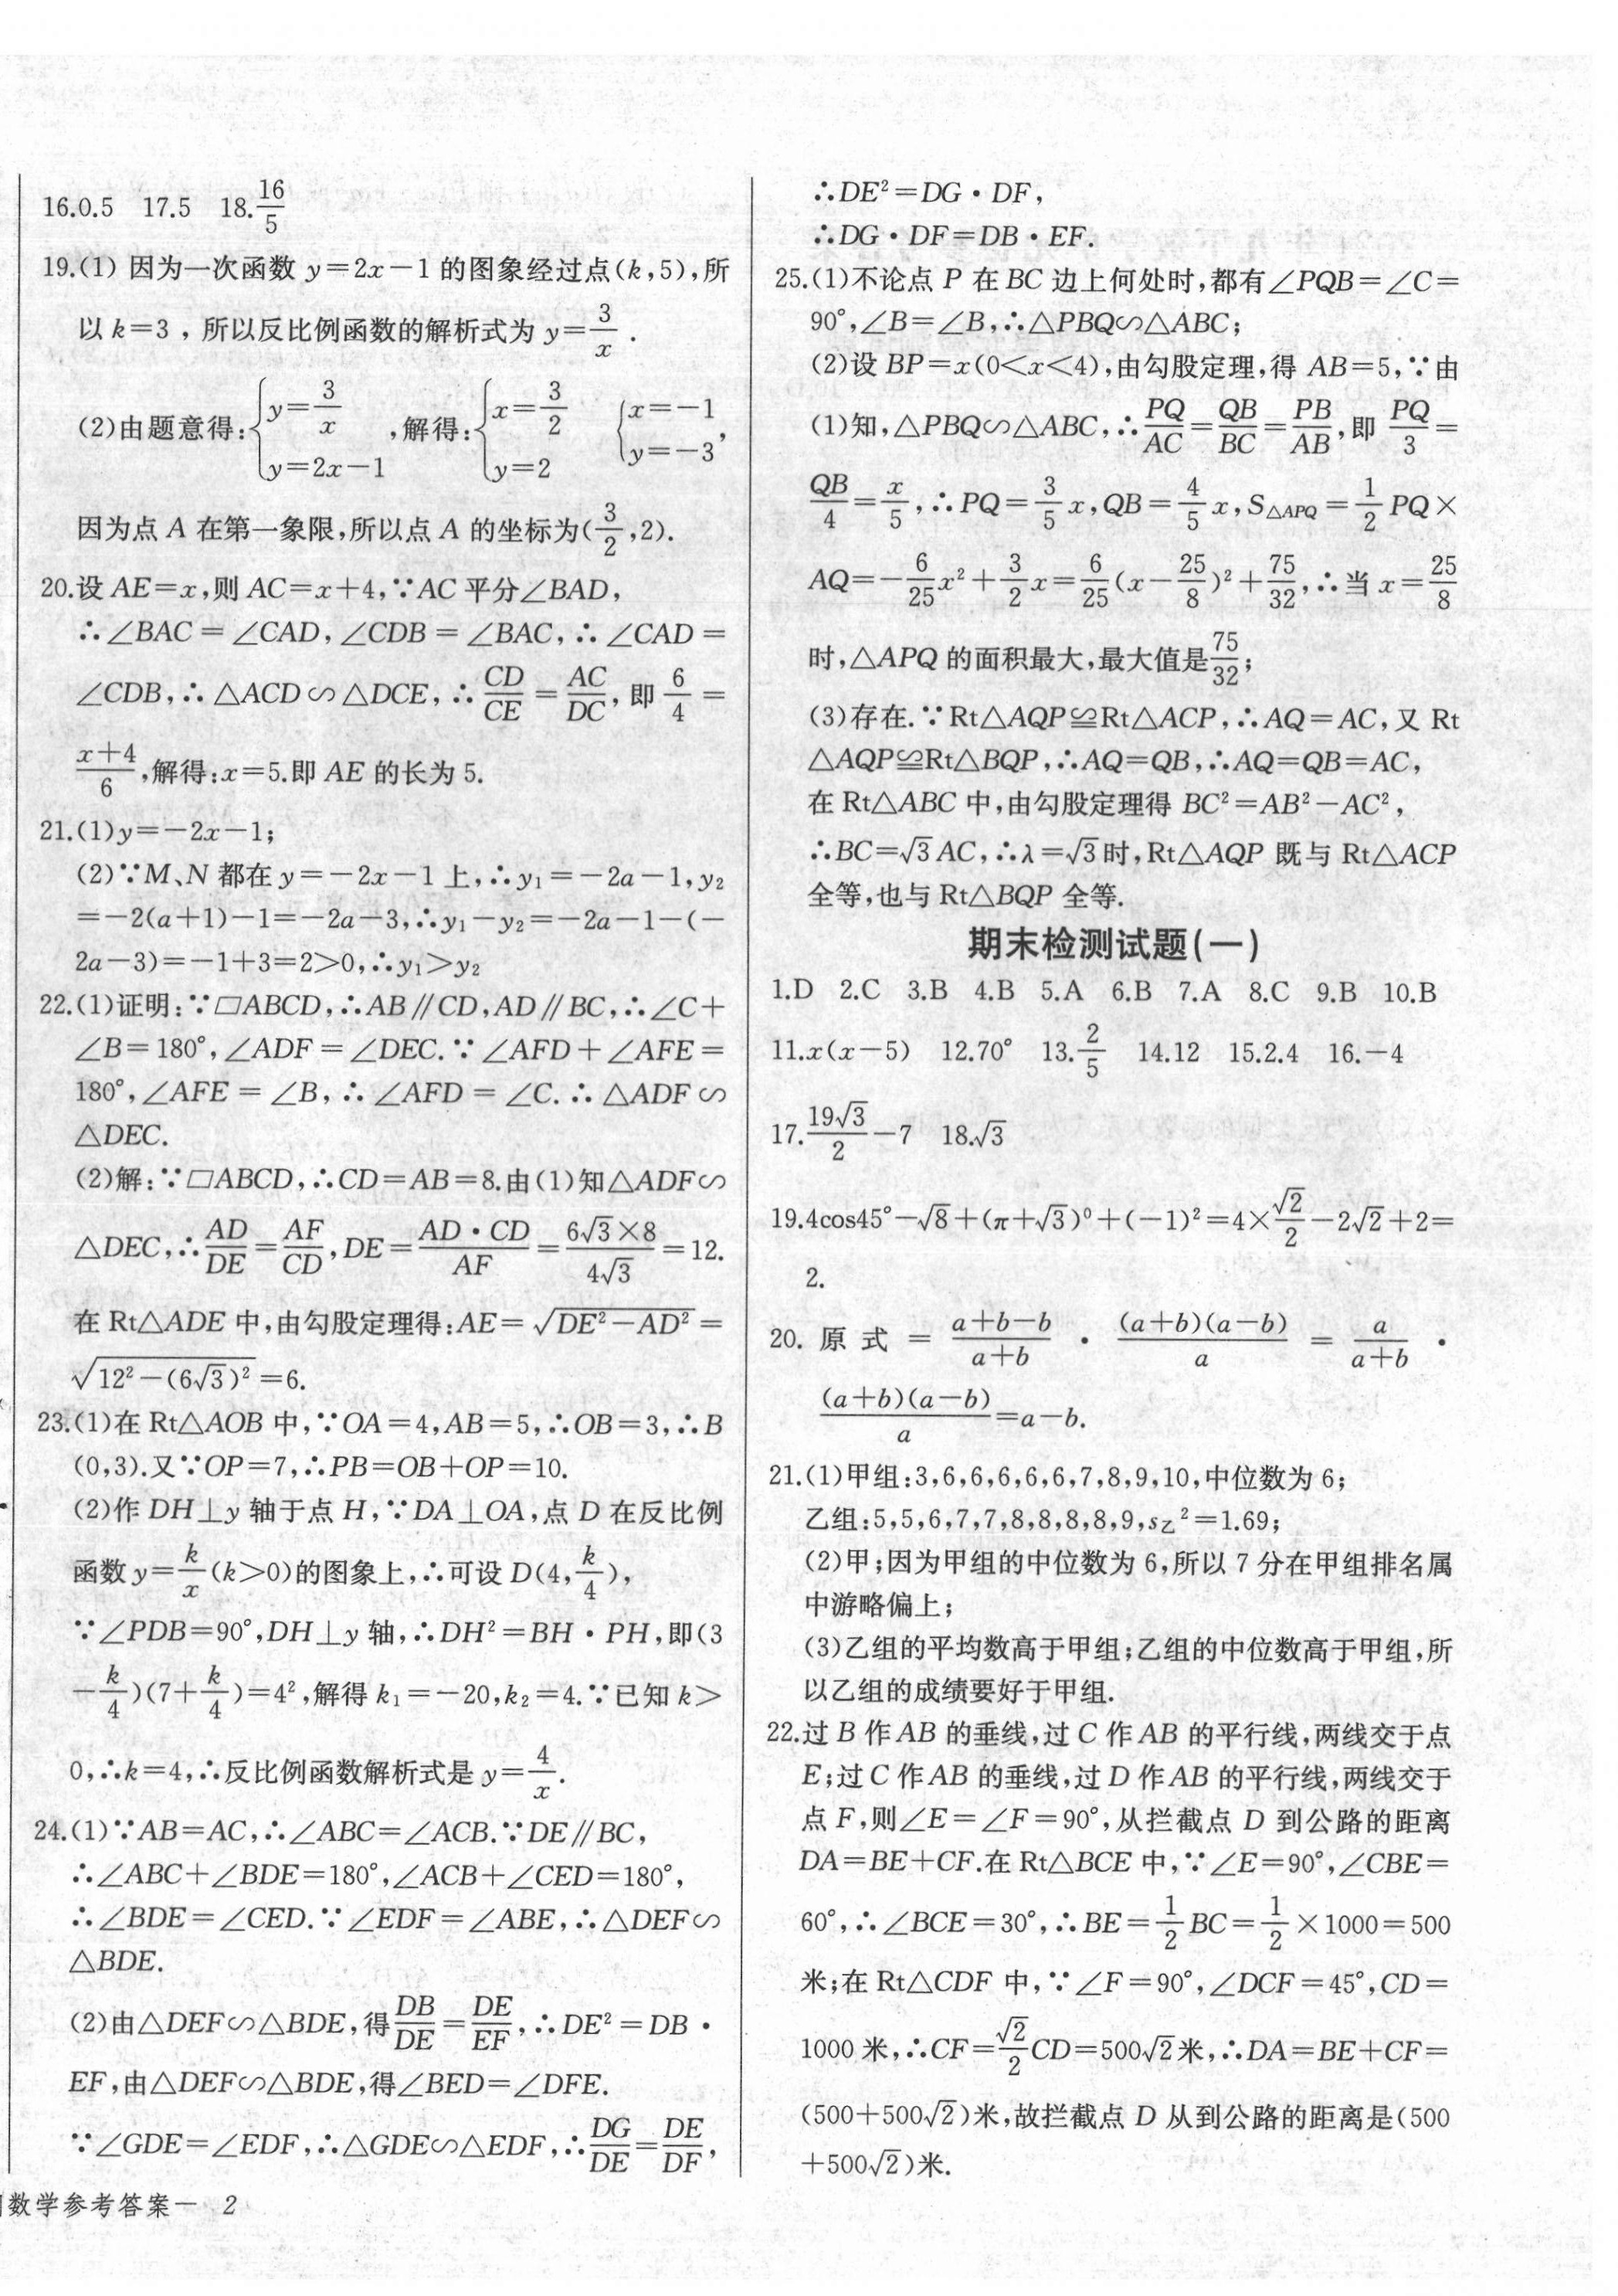 16.0.5 17.5 18.16/5
19.(1) 因为一次函数 y=2x-1 的图象经过点(k,5),所
以 k=3 , 所以反比例函数的解析式为 y=3/x .
(2)由题意得:{y=3/x y=2x-1 ,解得:{x=3/2 y=2 {x=-1 y=-3,
因为点 A 在第一象限,所以点 A 的坐标为(3/2,2).
20.设 AE=x,则 AC=x+4,∵AC 平分∠BAD,
∴∠BAC=∠CAD,∠CDB=∠BAC,∴∠CAD=
∠CDB,∴△ACD∽△DCE,∴CD/CE=AC/DC,即 6/4=
(x+4)/6,解得:x=5.即 AE 的长为 5.
21.(1)y=-2x-1;
(2)∵M、N 都在 y=-2x-1 上,∴y₁=-2a-1,y₂
=-2(a+1)-1=-2a-3,∴y₁-y₂=-2a-1-(-
2a-3)=-1+3=2>0,∴y₁>y₂
22.(1)证明:∵▱ABCD,∴AB∥CD,AD∥BC,∴∠C+
∠B=180°,∠ADF=∠DEC.∵∠AFD+∠AFE=
180°,∠AFE=∠B,∴∠AFD=∠C.∴△ADF∽
△DEC.
(2)解:∵▱ABCD,∴CD=AB=8.由(1)知△ADF∽
△DEC,∴AD/DE=AF/CD,DE=AD·CD/AF=6√3×8/4√3=12.
在 Rt△ADE 中,由勾股定理得:AE=√(DE²-AD²)=
√(12²-(6√3)²)=6.
23.(1)在 Rt△AOB 中,∵OA=4,AB=5,∴OB=3,∴B
(0,3).又∵OP=7,∴PB=OB+OP=10.
(2)作 DH⊥y 轴于点 H,∵DA⊥OA,点 D 在反比例
函数 y=k/x(k>0)的图象上,∴可设 D(4,k/4),
∵∠PDB=90°,DH⊥y 轴,∴DH²=BH·PH,即(3
-k/4)(7+k/4)=4²,解得 k₁=-20,k₂=4.∵已知 k>
0,∴k=4,∴反比例函数解析式是 y=4/x.
24.(1)∵AB=AC,∴∠ABC=∠ACB.∵DE∥BC,
∴∠ABC+∠BDE=180°,∠ACB+∠CED=180°,
∴∠BDE=∠CED.∵∠EDF=∠ABE,∴△DEF∽
△BDE.
(2)由△DEF∽△BDE,得DB/DE=DE/EF,∴DE²=DB·
EF,由△DEF∽△BDE,得∠BED=∠DFE.
∵∠GDE=∠EDF,∴△GDE∽△EDF,∴DG/DE=DE/DF,
∴DE²=DG·DF,
∴DG·DF=DB·EF.
25.(1)不论点 P 在 BC 边上何处时,都有∠PQB=∠C=
90°,∠B=∠B,∴△PBQ∽△ABC;
(2)设 BP=x(0<x<4),由勾股定理,得 AB=5,∵由
(1)知,△PBQ∽△ABC,∴PQ/AC=QB/BC=PB/AB,即 PQ/3=
QB/4=x/5,∴PQ=3/5x,QB=4/5x,S△APQ=1/2PQ×
AQ=-6/25x²+3/2x=6/25(x-25/8)²+75/32,∴当 x=25/8
时,△APQ 的面积最大,最大值是75/32;
(3)存在.∵Rt△AQP≌Rt△ACP,∴AQ=AC,又 Rt
△AQP≌Rt△BQP,∴AQ=QB,∴AQ=QB=AC,
在 Rt△ABC 中,由勾股定理得 BC²=AB²-AC²,
∴BC=√3AC,∴λ=√3时,Rt△AQP 既与 Rt△ACP
全等,也与 Rt△BQP 全等.
期末检测试题(一)
1.D 2.C 3.B 4.B 5.A 6.B 7.A 8.C 9.B 10.B
11.x(x-5) 12.70° 13.2/5 14.12 15.2.4 16.-4
17.19√3/2-7 18.√3
19.4cos45°-√8+(π+√3)⁰+(-1)²=4×√2/2-2√2+2=
2.
20. 原式=(a+b-b)/(a+b)·(a+b)(a-b)/a=a/(a+b)·
(a+b)(a-b)/a=a-b.
21.(1)甲组:3,6,6,6,6,6,7,8,9,10,中位数为 6;
乙组:5,5,6,7,7,8,8,8,8,9,s乙²=1.69;
(2)甲;因为甲组的中位数为 6,所以 7 分在甲组排名属
中游略偏上;
(3)乙组的平均数高于甲组;乙组的中位数高于甲组,所
以乙组的成绩要好于甲组.
22.过 B 作 AB 的垂线,过 C 作 AB 的平行线,两线交于点
E;过 C 作 AB 的垂线,过 D 作 AB 的平行线,两线交于
点 F,则∠E=∠F=90°,从拦截点 D 到公路的距离
DA=BE+CF.在 Rt△BCE 中,∵∠E=90°,∠CBE=
60°,∴∠BCE=30°,∴BE=1/2BC=1/2×1000=500
米;在 Rt△CDF 中,∵∠F=90°,∠DCF=45°,CD=
1000 米,∴CF=√2/2CD=500√2米,∴DA=BE+CF=
(500+500√2)米,故拦截点 D 从到公路的距离是(500
+500√2)米.
数学参考答案一 2